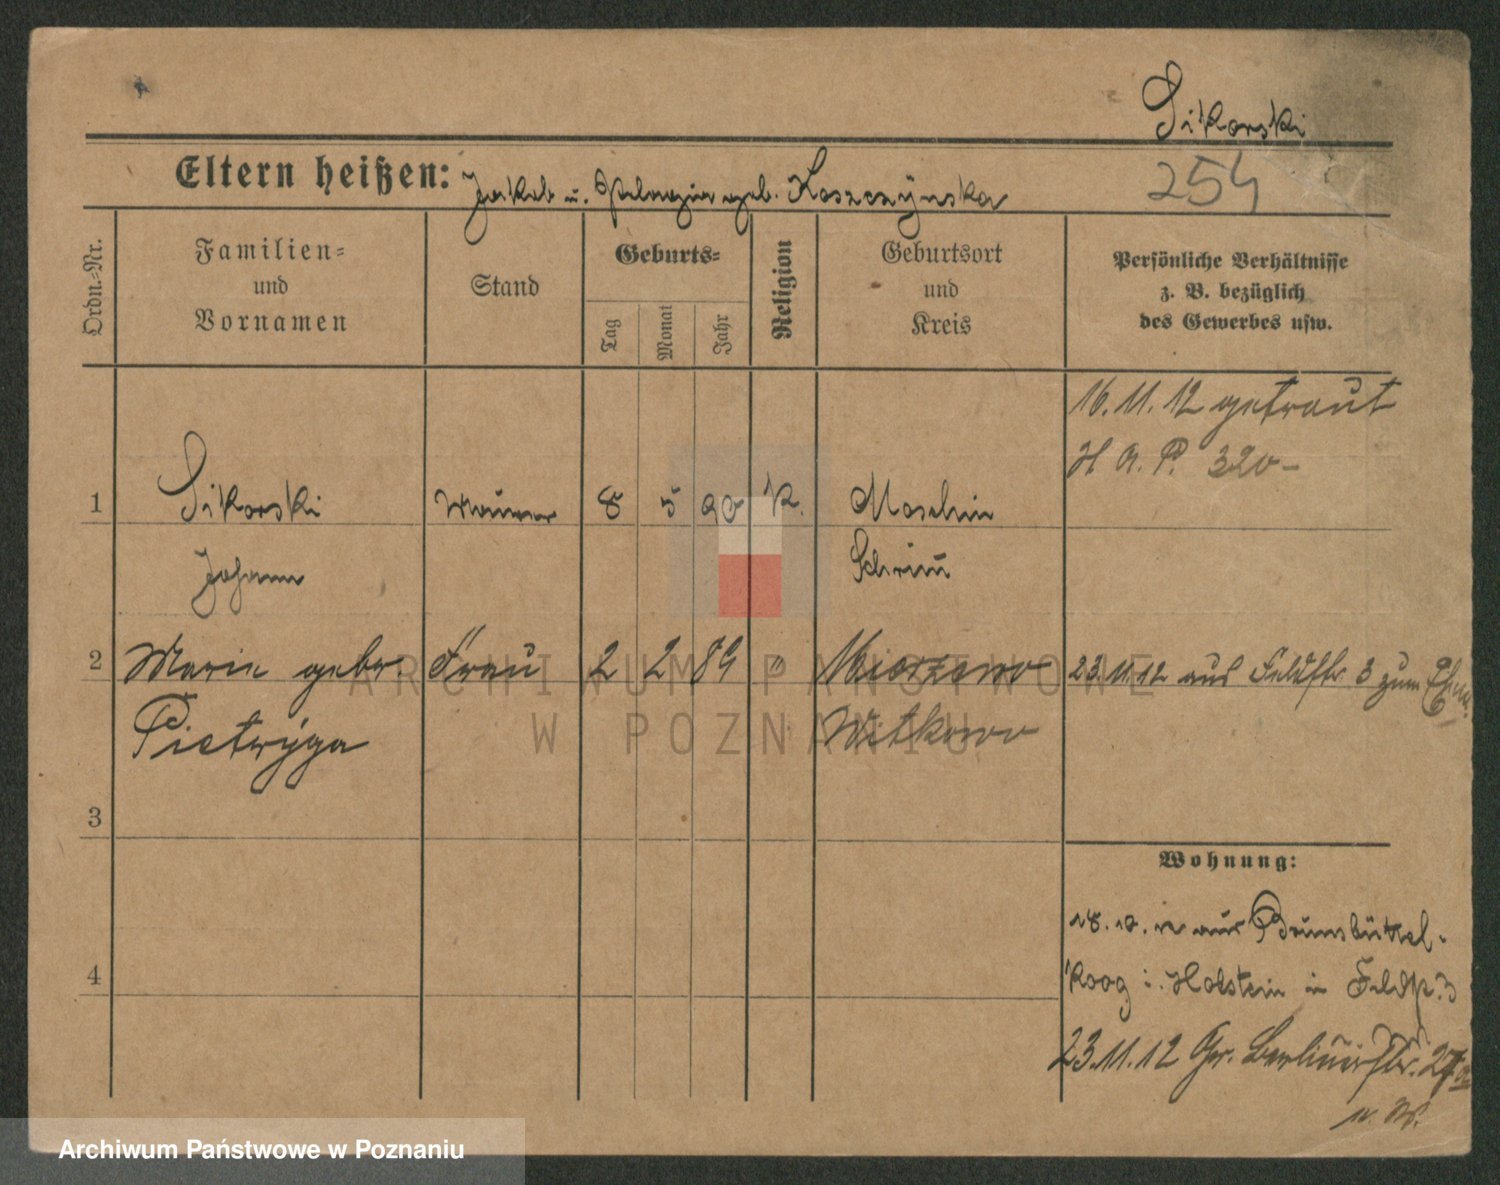 Sikorski
Eltern heißen: Jakob u. Pelagia geb. Koszczynska
254
Ordn.-Nr.
Familien- und Vornamen
Stand
Geburts-
Tag
Monat
Jahr
Religion
Geburtsort und Kreis
Persönliche Verhältnisse
z. B. bezüglich
des Gewerbes usw.
16.11.12 getraut
H A. P. 320-
1 Sikorski Maurer 8 5 90 K. Moschin
Johann Schrimm
2 Marie gebr. Frau 2 2 89 " Mierzewo 23.11.12 aus Feldstr. 3 zum
Pietryga Witkowo
3
Wohnung:
18.10.12 aus Brunsbüttel-
koog i. Holstein in Feldstr. 3
4
23.11.12 Gr. Berlinerstr. 27a
ARCHIWUM PAŃSTWOWE
W POZNANIU
Archiwum Państwowe w Poznaniu